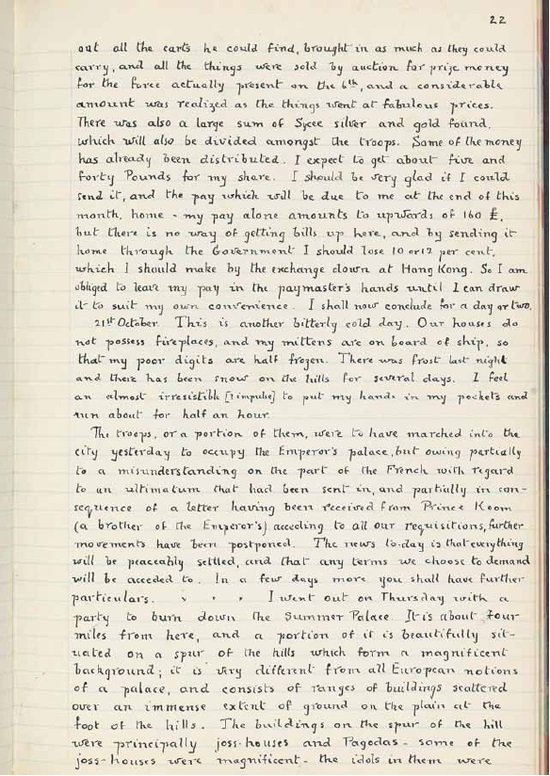 22
out all the carts he could find, brought in as much as they could
carry, and all the things were sold by auction for prize money
for the force actually present on the 6th, and a considerable
amount was realized as the things went at fabulous prices.
There was also a large sum of Sycee silver and gold found,
which will also be divided amongst the troops. Some of the money
has already been distributed. I expect to get about five and
forty Pounds for my share. I should be very glad if I could
send it, and the pay which will be due to me at the end of this
month, home - my pay alone amounts to upwards of 160 £,
but there is no way of getting bills up here, and by sending it
home through the Government I should lose 10 or 12 per cent,
which I should make by the exchange down at Hang Kong. So I am
obliged to leave my pay in the paymaster's hands until I can draw
it to suit my own convenience. I shall now conclude for a day or two.
21st October. This is another bitterly cold day. Our houses do
not possess fireplaces, and my mittens are on board of ship, so
that my poor digits are half frozen. There was frost last night
and there has been snow on the hills for several days. I feel
an almost irresistible [? impulse] to put my hands in my pockets and
run about for half an hour.
The troops, or a portion of them, were to have marched into the
city yesterday to occupy the Emperor's palace, but owing partially
to a misunderstanding on the part of the French with regard
to an ultimatum that had been sent in, and partially in con-
sequence of a letter having been received from Prince Koom
(a brother of the Emperor's) acceding to all our requisitions, further
movements have been postponed. The news to-day is that everything
will be peaceably settled, and that any terms we choose to demand
will be acceded to. In a few days more you shall have further
particulars. . . . I went out on Thursday with a
party to burn down the Summer Palace. It is about four
miles from here, and a portion of it is beautifully sit-
uated on a spur of the hills which form a magnificent
background; it is very different from all European notions
of a palace, and consists of ranges of buildings scattered
over an immense extent of ground on the plain at the
foot of the hills. The buildings on the spur of the hill
were principally joss-houses and Pagodas - some of the
joss-houses were magnificent - the idols in them were